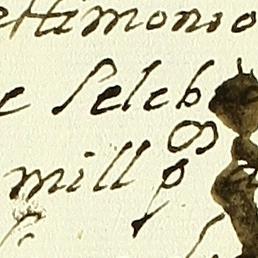 testimonio
e Seleb
mill p